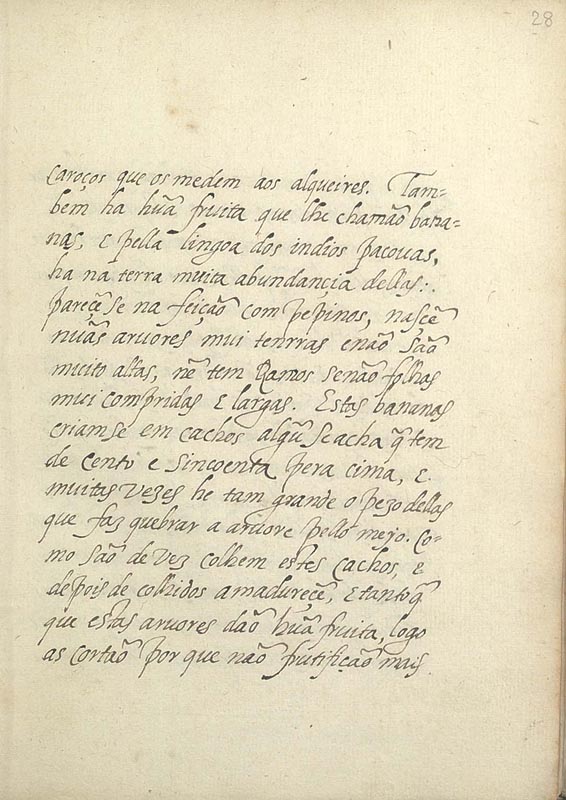 28
caroços que os medem aos alqueires. Tam-
bem ha huã fruita que lhe chamão bana-
nas, E pella lingoa dos indios pacouas,
ha na terra muita abundançia dellas:.
pareçẽse na feição com pepinos, nasçẽ
nuãs aruores mui tenrras e não são
muito altas, nẽ tem Ramos senão folhas
mui compridas E largas. Estas bananas
criamse em cachos algũ se acha q̃ tem
de cento e sincoenta pera cima, E
muitas vezes he tam grande o pezo dellas
que faz quebrar a aruore pello mejo. Co-
mo são de vez colhem estes cachos, e
depois de colhidos amadureçẽ, E tanto q̃
que estas aruores dão huã fruita, logo
as cortão por que não frutifição mais